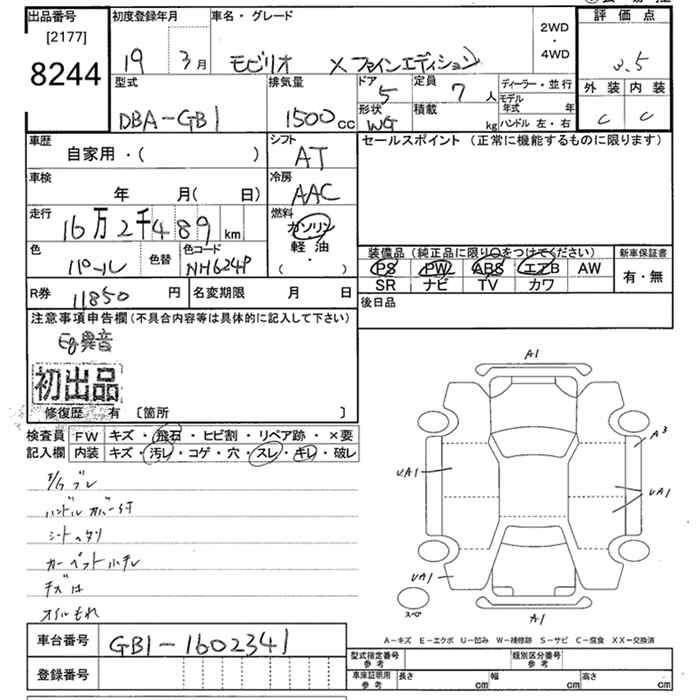 出品番号
[2177]
8244
初度登録年月
19 3月
車名・グレード
モビリオ X ファインエディション
2WD
・
4WD
評価点
3.5
外装 内装
C C
型式
DBA-GB1
排気量
1500cc
ドア
5
形状
WG
定員
7人
積載
kg
ディーラー・並行
モデル年式 年
ハンドル 左・右
車歴
自家用・( )
シフト
AT
セールスポイント (正常に機能するものに限ります)
車検
年 月( 日)
冷房
AAC
走行
16万2千489km
燃料
ガソリン
軽油
( ・ )
色
パール
色替
色コード
NH624P
装備品(純正品に限り○をつけてください)
PS PW ABS エアB AW
SR ナビ TV カワ
新車保証書
有・無
R券 11850円
名変期限 月 日
後日品
注意事項申告欄(不具合内容等は具体的に記入して下さい)
Eg異音
初出品
修復歴 有 [箇所 ]
検査員
記入欄
FW キズ・飛石・ヒビ割・リペア跡・×要
内装 キズ・汚レ・コゲ・穴・スレ・キレ・破レ
ハンドルカバー付
シートヘタリ
オイルもれ
A1
A3
UA1
UA1
UA1
A1
スペア
A-キズ E-エクボ U-凹み W-補修跡 S-サビ C-腐食 XX-交換済
車台番号
GB1-1602341
登録番号
型式指定番号
参考
類別区分番号
参考
車庫証明用
参考
長さ cm
幅 cm
高さ cm